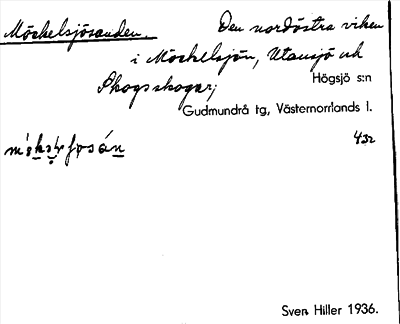 Möckelsjösanden. Den nordöstra viken
i Möckelsjön, Utansjö och
Skogsskogar;
Högsjö s:n
Gudmundrå tg, Västernorrlands l.
432
Sven Hiller 1936.